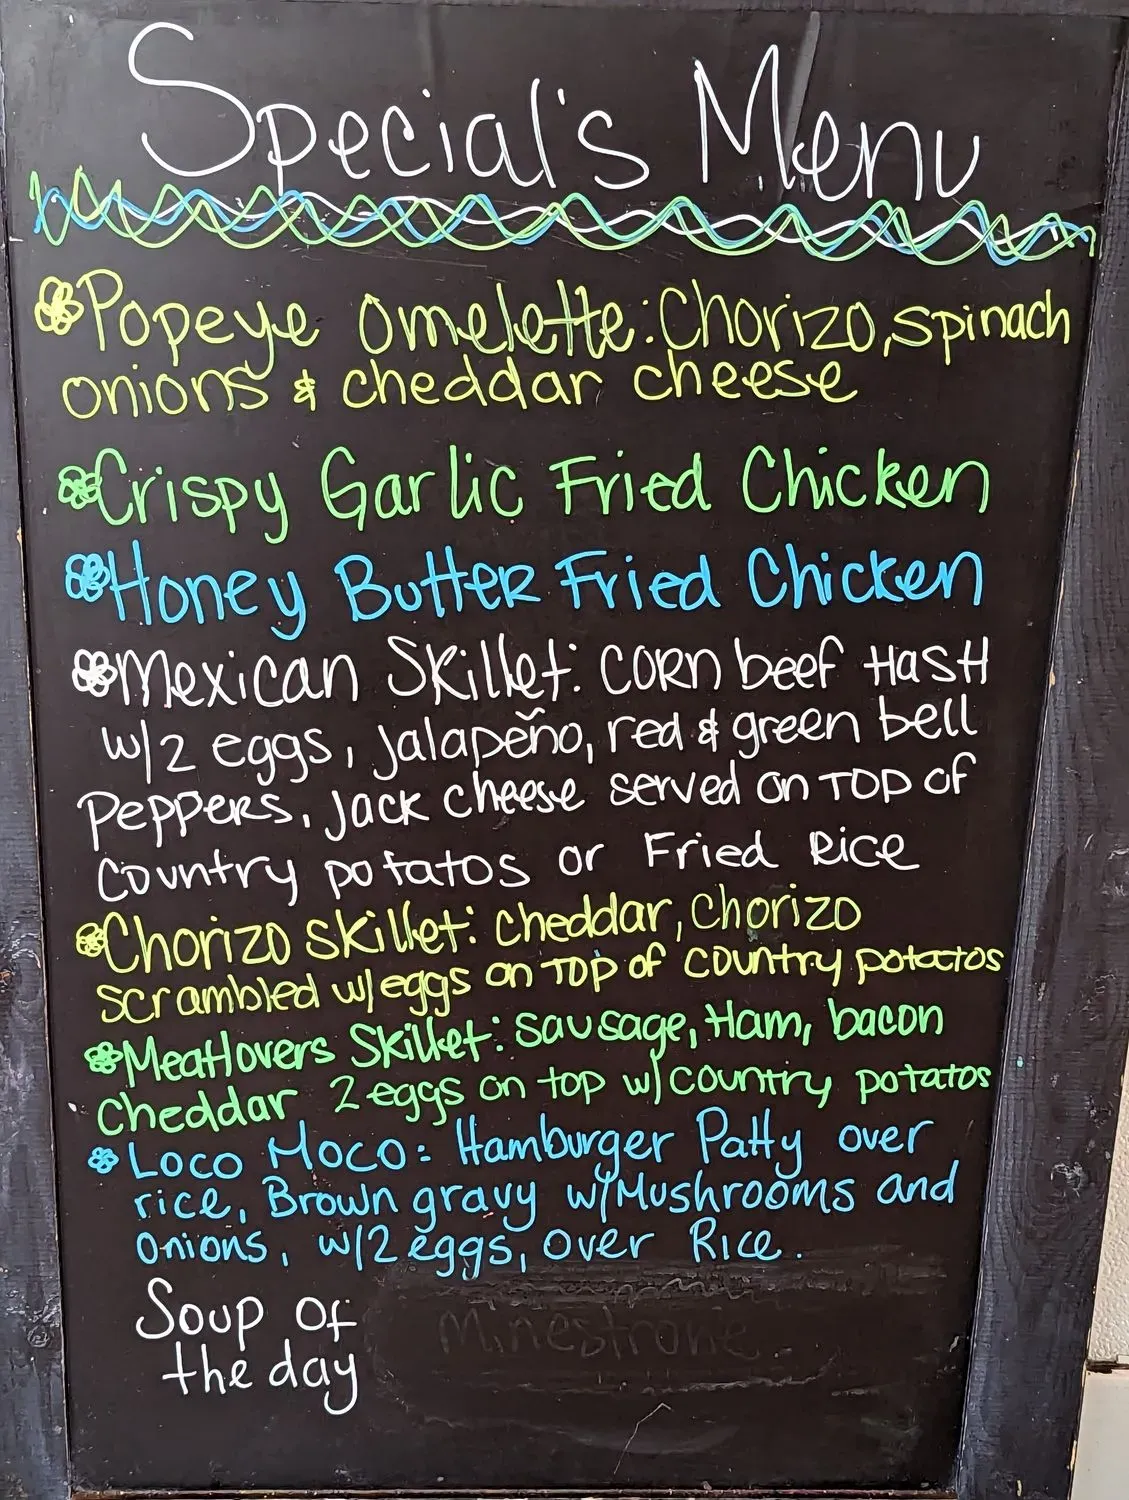 Special's Menu
Popeye Omelette: Chorizo, spinach
onions & cheddar cheese
Crispy Garlic Fried Chicken
Honey Butter Fried Chicken
Mexican Skillet: Corn beef Hash
w/2 eggs, jalapeño, red & green bell
Peppers, jack cheese served on TOP of
Country potatos or Fried Rice
Chorizo Skillet: cheddar, chorizo
scrambled w/eggs on TOP of country potatos
Meatlovers Skillet: sausage, Ham, bacon
Cheddar 2 eggs on top w/country potatos
Loco Moco: Hamburger Patty over
rice, Brown gravy w/Mushrooms and
Onions, w/2 eggs, over Rice.
Soup of
the day
Minestrone